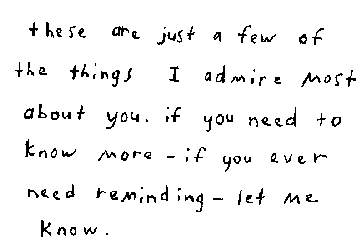 these are just a few of
the things I admire most
about you. if you need to
know more - if you ever
need reminding - let me
know.